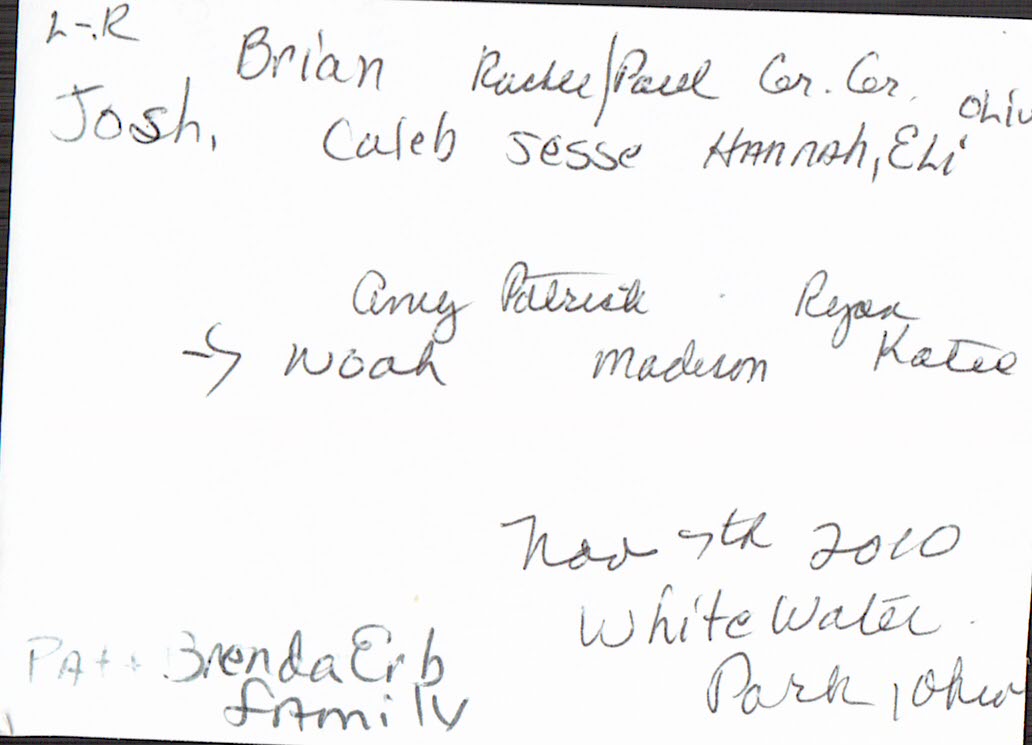 L-R
Brian Rachel/Paul Cor. Cor. Oliv
Josh, Caleb Jesse HANNAh, ELi
Amy Patrick Ryan
→ Noah Madison Katie
Nov 7th 2010
White Water
Park, Ohio
PAt + Brenda Erb
family